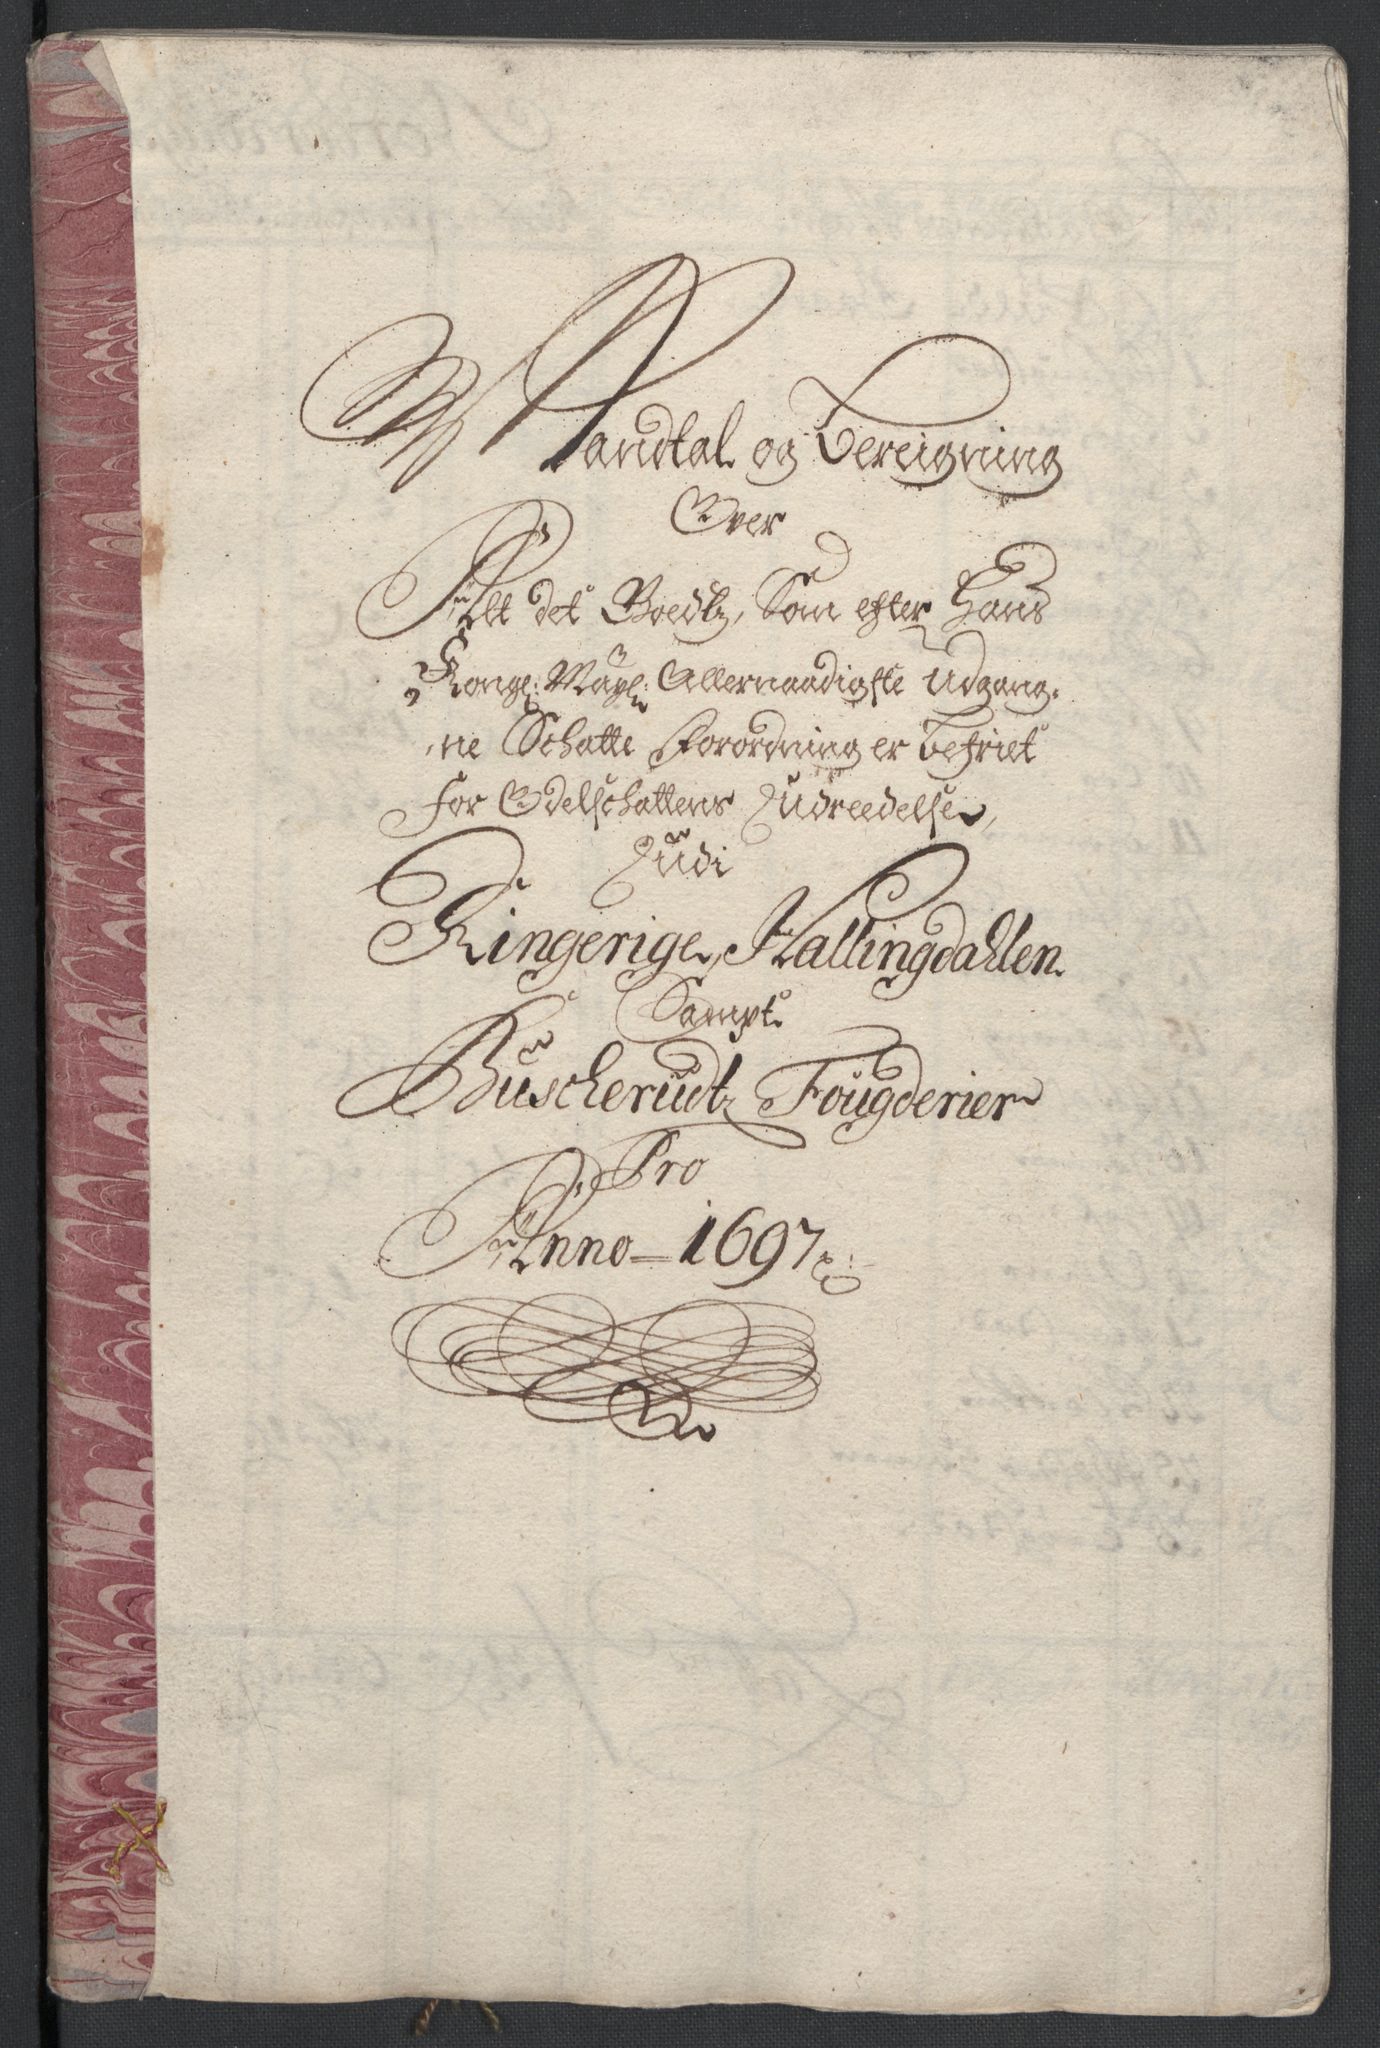 Mandtal og Bereigning
Over
Alt det Goedtz, Som efter Hans
Kongl: Mayt: Allernaadigste Udgang-
ne Schatte Forordning er befriet
for Odelschattens Udreedelse,
Udi
Ringerige, Hallingdahlen
Sampt
Buscherudtz Fougderier
Pro
Anno 1697